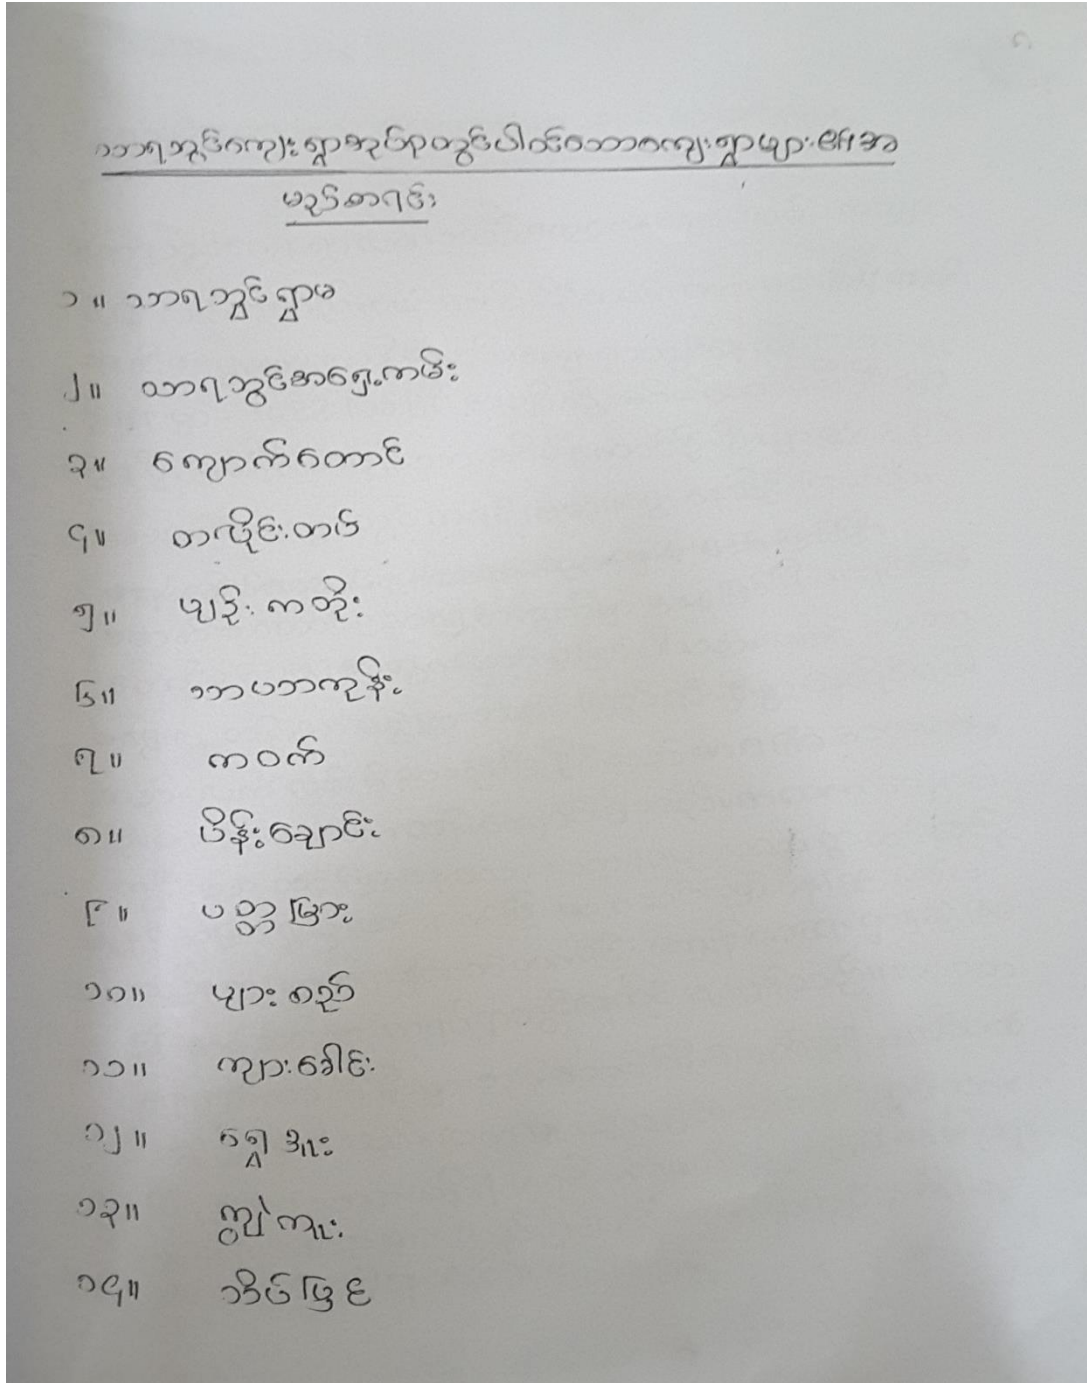 သာရဘွင်ကျေးရွာအုပ်စုတွင်ပါဝင်သောကျေးရွာများ၏အ
မည်စာရင်း
၁။ သာရဘွင်ရွာမ
၂။ သာရဘွင်အရှေ့ကမ်း
၃။ ကျောက်တောင်
၄။ တလိုင်းတပ်
၅။ မျဉ်းကတိုး
၆။ သာပဘကုန်း
၇။ ကဝက်
၈။ ပိန်းချောင်း
၉။ ပတ္တမြား
၁၀။ များစည်
၁၁။ ကျားခေါင်း
၁၂။ ရွှေဒါး
၁၃။ ကျွဲကူး
၁၄။ သိပ်မြင်